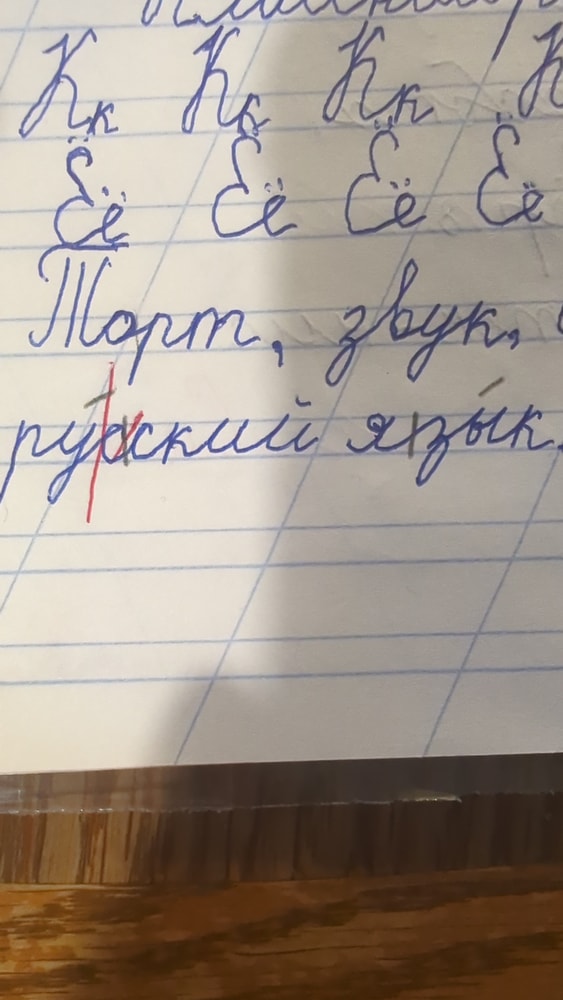 Кк Кк Кк К
Ёё Ёё Ёё Ёё
Торт, звук,
русский язык.